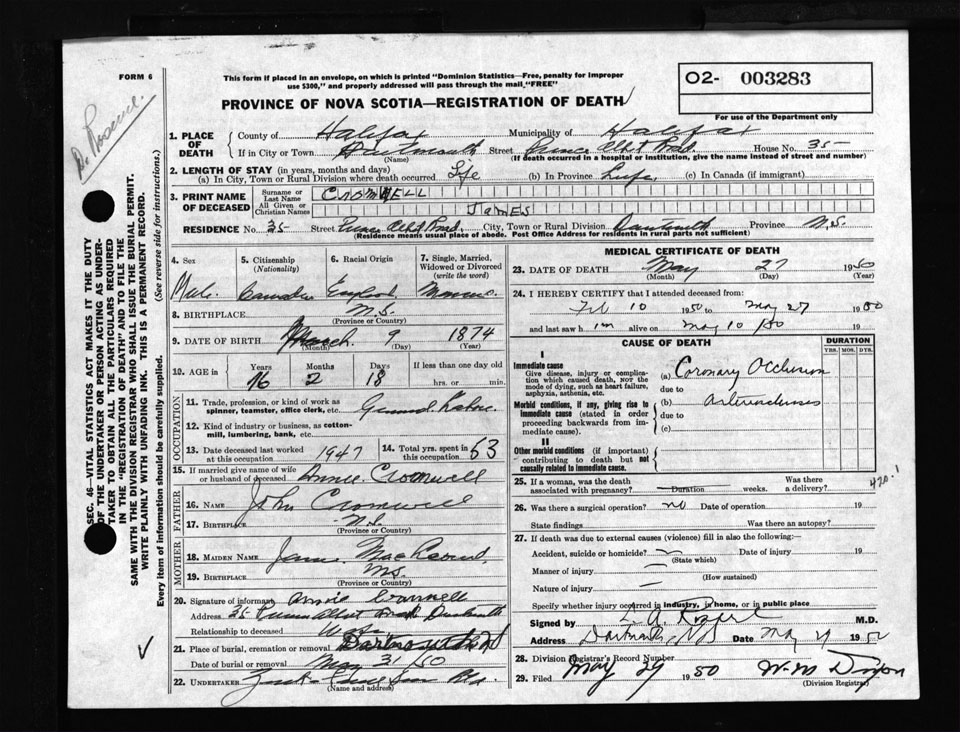 FORM 6
This form if placed in an envelope, on which is printed "Dominion Statistics—Free, penalty for improper
use $300," and properly addressed will pass through the mail "FREE"
O2- 003283
PROVINCE OF NOVA SCOTIA—REGISTRATION OF DEATH
For use of the Department only
1. PLACE OF DEATH
County of Halifax Municipality of Halifax
If in City or Town Dartmouth Street Prince Albert Road House No. 35
(Name) (If death occurred in a hospital or institution, give the name instead of street and number)
2. LENGTH OF STAY (in years, months and days)
(a) In City, Town or Rural Division where death occurred Life (b) In Province Life (c) In Canada (if immigrant)
3. PRINT NAME OF DECEASED
Surname or Last Name CROMWELL
All Given or Christian Names JAMES
RESIDENCE No. 35 Street Prince Albert Road, City, Town or Rural Division Dartmouth Province N.S.
(Residence means usual place of abode. Post Office Address for residents in rural parts not sufficient)
4. Sex 5. Citizenship (Nationality) 6. Racial Origin 7. Single, Married, Widowed or Divorced (write the word)
Male English
8. BIRTHPLACE N.S.
(Province or Country)
9. DATE OF BIRTH March 9 1874
(Month) (Day) (Year)
10. AGE in Years Months Days If less than one day old
76 2 18 hrs. or min.
OCCUPATION
11. Trade, profession, or kind of work as
spinner, teamster, office clerk, etc.
12. Kind of industry or business, as cotton-
mill, lumbering, bank, etc.
13. Date deceased last worked at this occupation 1947 14. Total yrs. spent in this occupation 53
15. If married give name of wife or husband of deceased Annie Cromwell
FATHER
16. NAME John Cromwell
17. BIRTHPLACE N.S.
(Province or Country)
MOTHER
18. MAIDEN NAME
19. BIRTHPLACE N.S.
(Province or Country)
20. Signature of informant Annie Cromwell
Address 35 Prince Albert Road Dartmouth
Relationship to deceased Wife
21. Place of burial, cremation or removal Dartmouth N.S.
Date of burial or removal May 31/50
22. UNDERTAKER
(Name and address)
MEDICAL CERTIFICATE OF DEATH
23. DATE OF DEATH May 27 1950
(Month) (Day) (Year)
24. I HEREBY CERTIFY that I attended deceased from:
Feb 10 1950 to May 27 1950
and last saw him alive on May 10/50 19
CAUSE OF DEATH DURATION
YRS. MOS. DYS.
I
Immediate cause
Give disease, injury or complica-
tion which caused death, NOT the
mode of dying, such as heart failure,
asphyxia, asthenia, etc.
(a) Coronary Occlusion
due to
Morbid conditions, if any, giving rise to
immediate cause (stated in order
proceeding backwards from im-
mediate cause).
(b)
due to
(c)
II
Other morbid conditions (if important)
contributing to death but not
causally related to immediate cause.
25. If a woman, was the death associated with pregnancy? Duration weeks. Was there a delivery?
26. Was there a surgical operation? no Date of operation 19
State findings Was there an autopsy?
27. If death was due to external causes (violence) fill in also the following:—
Accident, suicide or homicide? Date of injury 19
(State which)
Manner of injury
(How sustained)
Nature of injury
Specify whether injury occurred in industry, in home, or in public place
Signed by M.D.
Address Dartmouth, N.S. Date May
28. Division Registrar's Record Number
29. Filed May 29 1950 W. M. Dixon
(Division Registrar)
SEC. 46—VITAL STATISTICS ACT MAKES IT THE DUTY
OF THE UNDERTAKER OR PERSON ACTING AS UNDER-
TAKER TO OBTAIN ALL THE PARTICULARS REQUIRED
IN THE "REGISTRATION OF DEATH" AND TO FILE THE
SAME WITH THE DIVISION REGISTRAR WHO SHALL ISSUE THE BURIAL PERMIT.
WRITE PLAINLY WITH UNFADING INK. THIS IS A PERMANENT RECORD.
Every item of information should be carefully supplied. (See reverse side for instructions.)